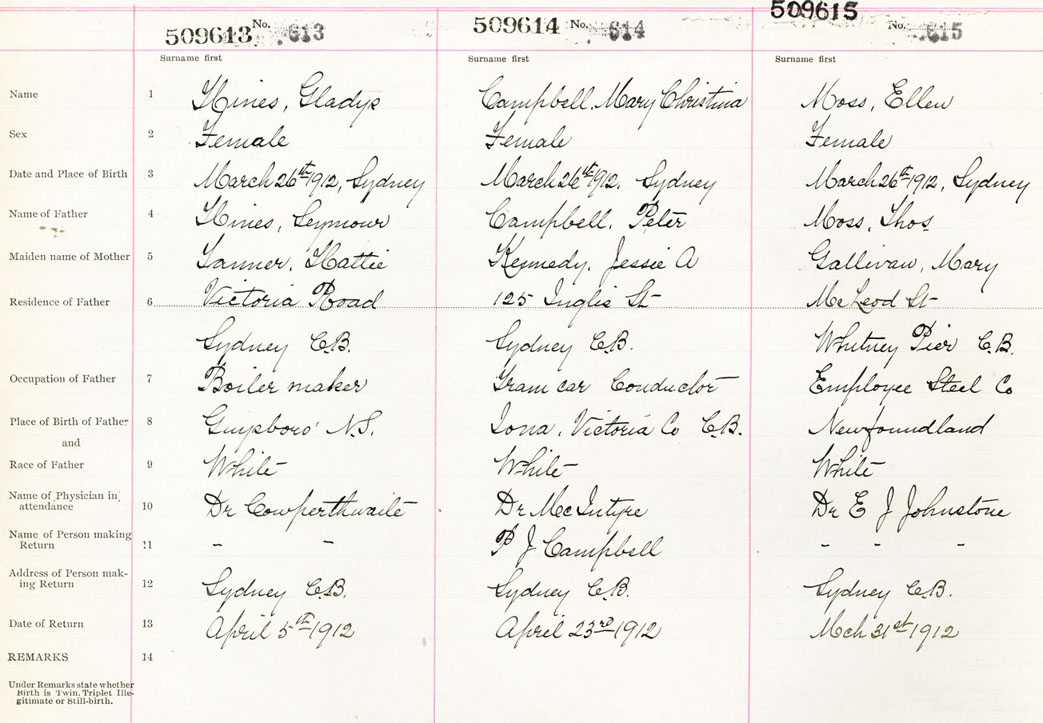 509613 No. 613 509614 No. 614 509615 No. 615
Surname first Surname first Surname first
Name 1 Hines, Gladys Campbell, Mary Christina Moss, Ellen
Sex 2 Female Female Female
Date and Place of Birth 3 March 26th 1912, Sydney March 26th 1912, Sydney March 26th 1912, Sydney
Name of Father 4 Hines, Seymour Campbell, Peter Moss, Thos.
Maiden name of Mother 5 Hattie Kennedy, Jessie A Gallivan, Mary
Residence of Father 6 Victoria Road 125 Inglis St McLeod St
Sydney C.B. Sydney C.B. Whitney Pier C.B.
Occupation of Father 7 Boiler maker Tram car Conductor Employee Steel Co
Place of Birth of Father 8 Guysboro' N.S. Iona, Victoria Co C.B. Newfoundland
and
Race of Father 9 White White White
Name of Physician in
attendance 10 Dr Cowperthwaite Dr MccIntyre Dr E J Johnstone
Name of Person making
Return 11 - - P J Campbell - - -
Address of Person mak-
ing Return 12 Sydney C.B. Sydney C.B. Sydney C.B.
Date of Return 13 April 5th 1912 April 23rd 1912 Mch 31st 1912
REMARKS 14
Under Remarks state whether
Birth is Twin, Triplet Ille-
gitimate or Still-birth.